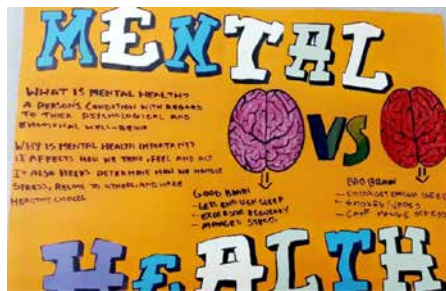 MENTAL
WHAT IS MENTAL HEALTH?
A PERSON'S CONDITION WITH REGARD
TO THEIR PSYCHOLOGICAL AND
EMOTIONAL WELL-BEING
VS
WHY IS MENTAL HEALTH IMPORTANT?
IT AFFECTS HOW WE THINK, FEEL AND ACT
IT ALSO HELPS DETERMINE HOW WE HANDLE
STRESS, RELATE TO OTHERS, AND MAKE
HEALTHY CHOICES
GOOD BRAIN!
- GETS ENOUGH SLEEP
- EXERCISE REGULARLY
- MANAGES STRESS
BAD BRAIN
- DOESN'T GET ENOUGH SLEEP
- SMOKES/VAPES
- CAN'T MANAGE STRESS
HEALTH